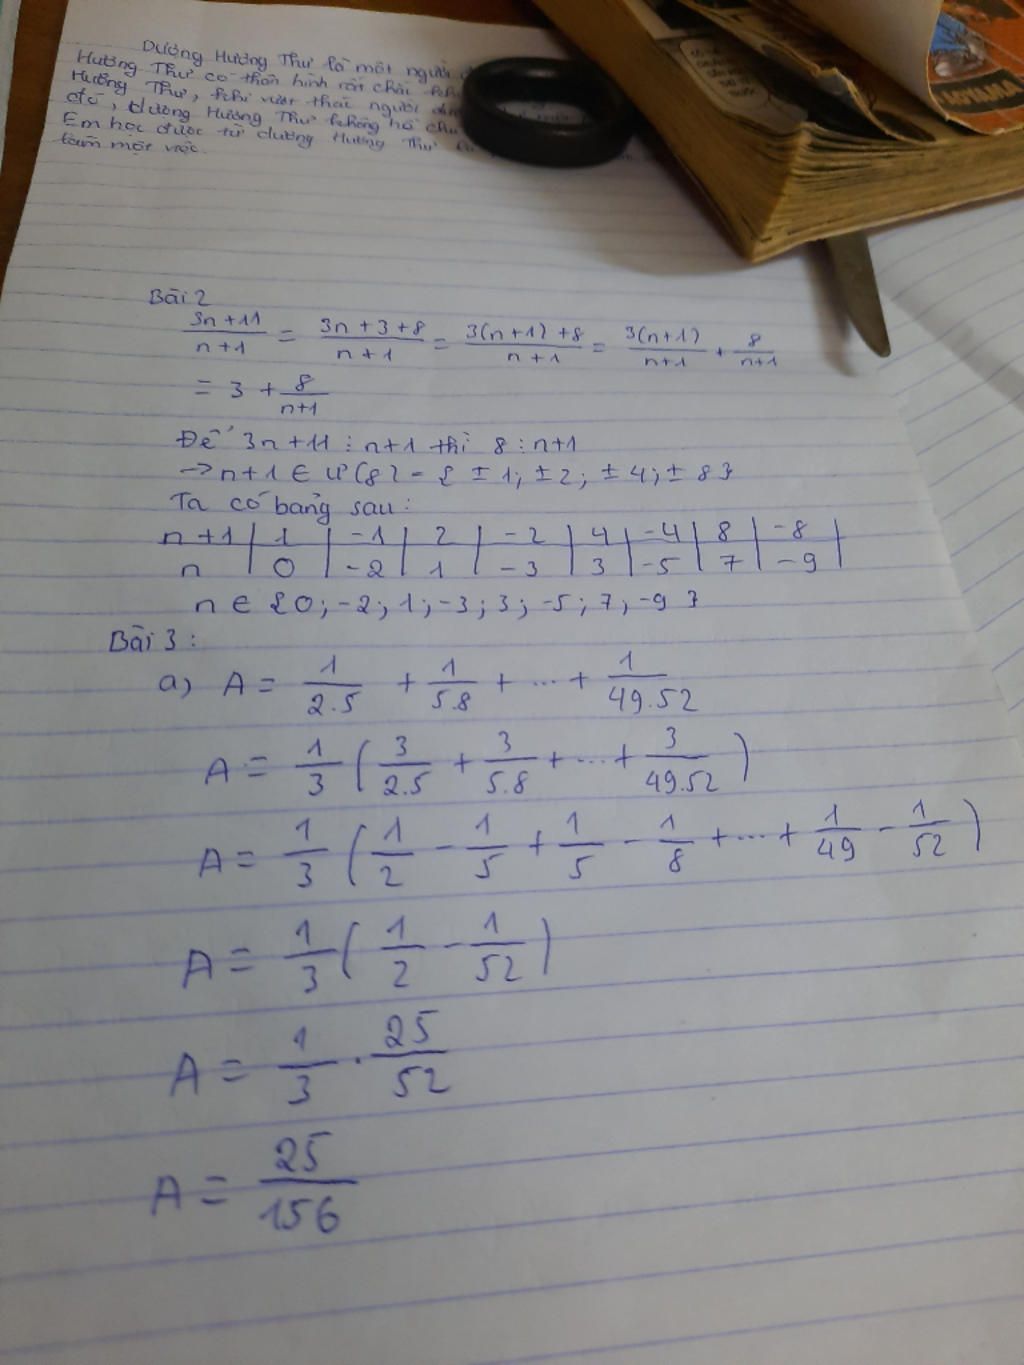 Dương Hương Thư là một người
Hương Thư có thân hình rất
Hương Thư, khi vừa thai người
đó, dương Hương Thư không hề
Em học được từ dương Hương Thư
làm một việc.
AOYAMA
Bài 2
3n+11/n+1 = 3n+3+8/n+1 = 3(n+1)+8/n+1 = 3(n+1)/n+1 + 8/n+1
= 3 + 8/n+1
Để 3n+11 ⋮ n+1 thì 8 ⋮ n+1
→ n+1 ∈ Ư(8) = {±1; ±2; ±4; ±8}
Ta có bảng sau:
n+1 | 1 | -1 | 2 | -2 | 4 | -4 | 8 | -8 |
n | 0 | -2 | 1 | -3 | 3 | -5 | 7 | -9 |
n ∈ {0; -2; 1; -3; 3; -5; 7; -9}
Bài 3:
a) A = 1/2.5 + 1/5.8 + ... + 1/49.52
A = 1/3 (3/2.5 + 3/5.8 + ... + 3/49.52)
A = 1/3 (1/2 - 1/5 + 1/5 - 1/8 + ... + 1/49 - 1/52)
A = 1/3 (1/2 - 1/52)
A = 1/3 . 25/52
A = 25/156